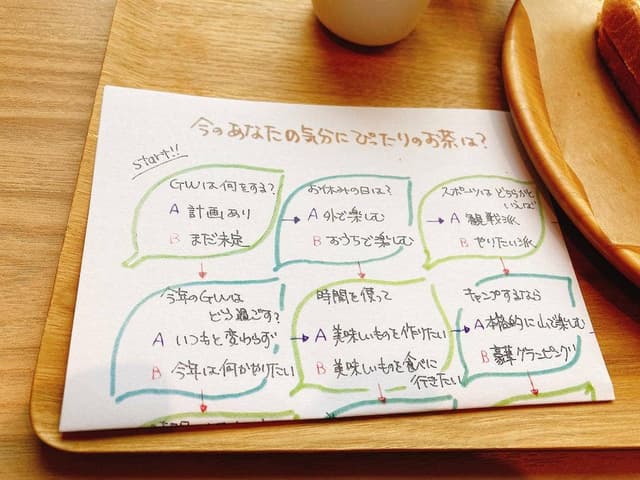 今のあなたの気分にぴったりのお茶は?
start!!
GWは何をする?
A 計画あり
B まだ未定
お休みの日は?
A 外で楽しむ
B おうちで楽しむ
スポーツは どちらかと
いえば
A 観戦派
B やりたい派
今年のGWは
どう過ごす?
A いつもと変わらず
B 今年は何かやりたい
時間を使って
A 美味しいものを作りたい
B 美味しいものを食べに
行きたい
キャンプするなら
A 本格的に山で楽しむ
B 豪華グランピング